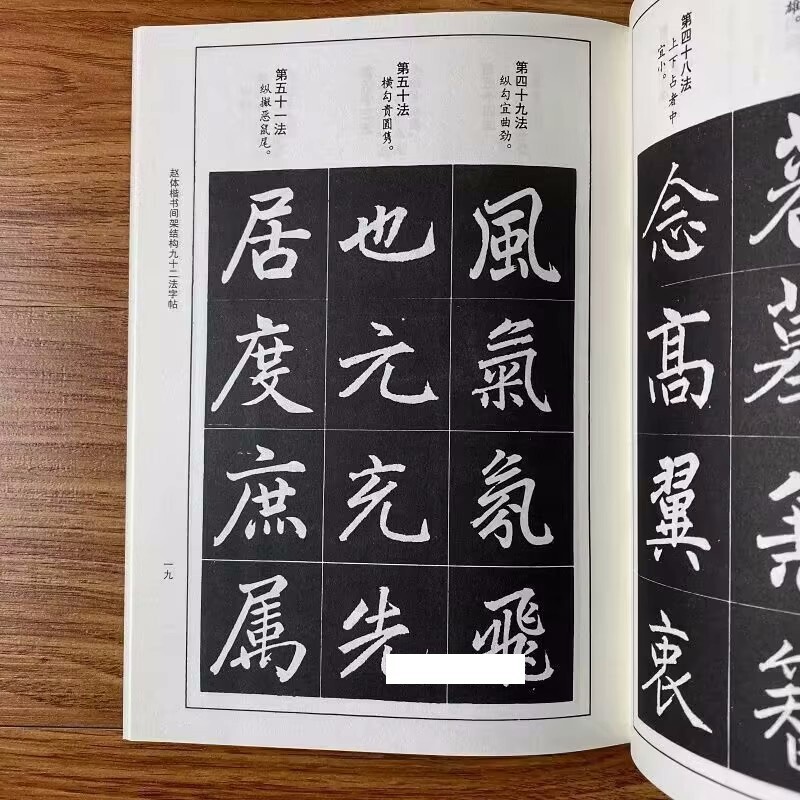 雄。
第四十八法
上下占者中
宜小。
念髙翼衷
第四十九法
纵勾宜曲劲。
風氣氛飛
第五十法
横勾贵圆隽。
也元充先
第五十一法
纵撇恶鼠尾。
居度庶属
赵体楷书间架结构九十二法字帖
一九